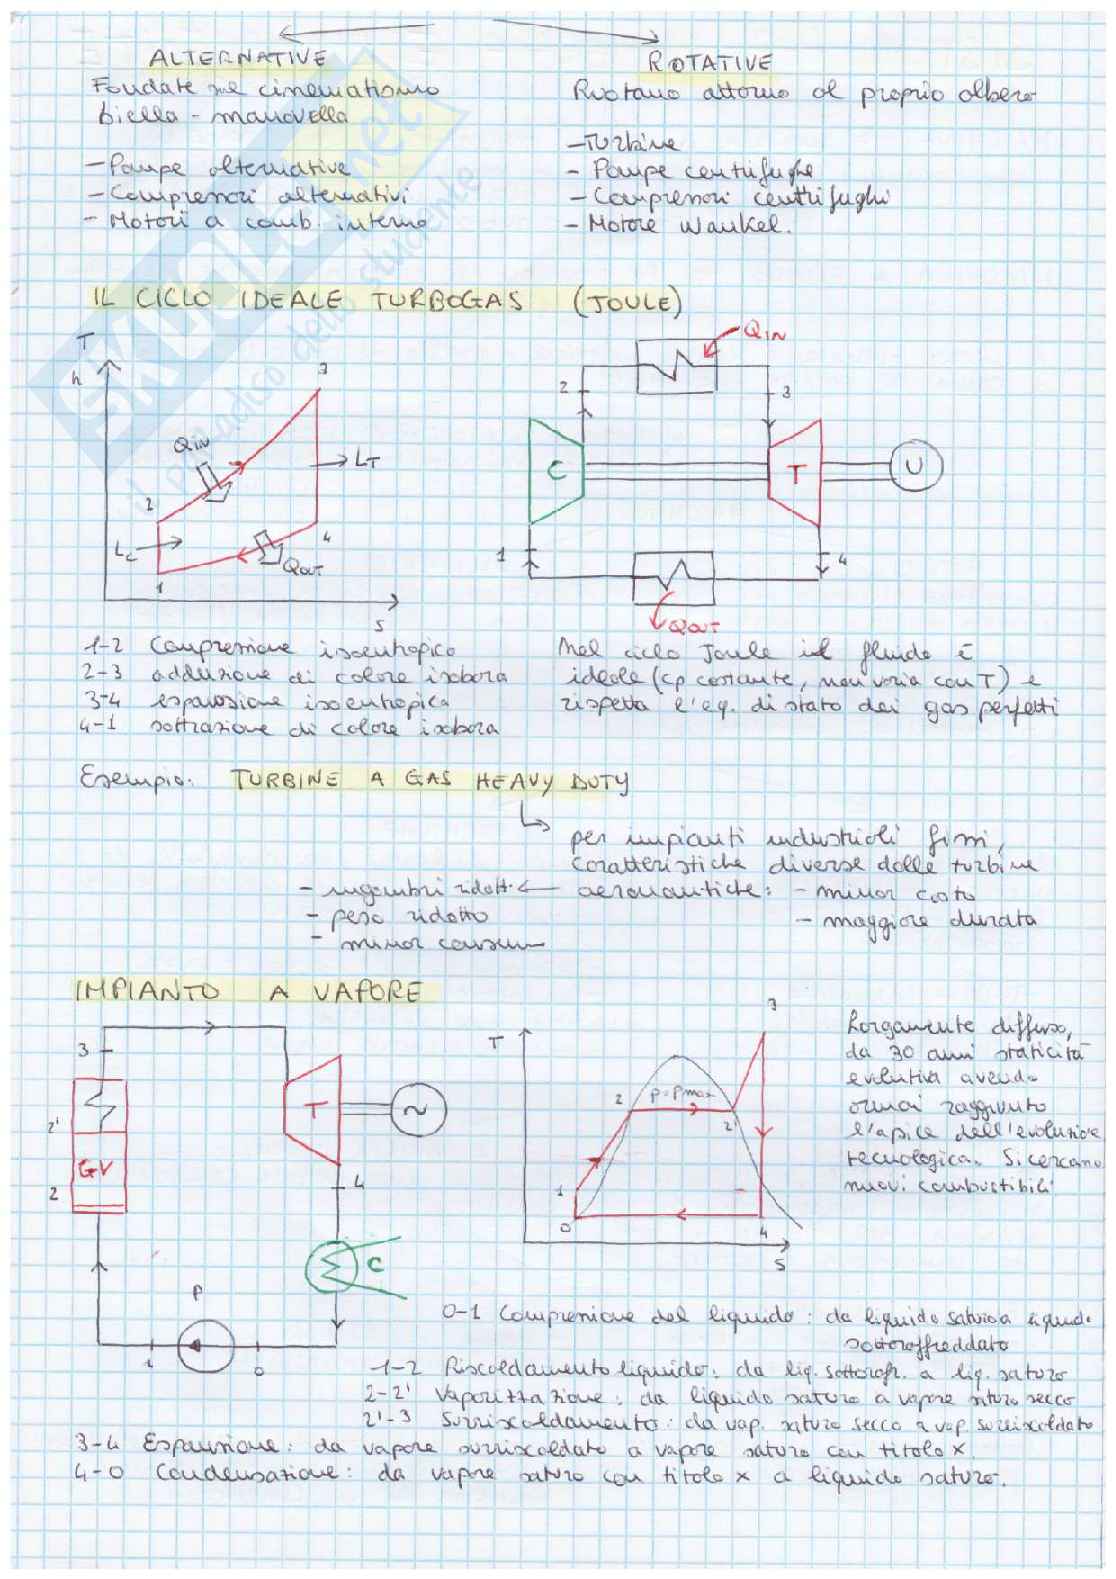 ALTERNATIVE
Fondate sul cinematismo
biella - manovella
- Pompe alternative
- Compressori alternativi
- Motori a comb. interna
ROTATIVE
Ruotano attorno al proprio albero
- Turbine
- Pompe centrifughe
- Compressori centrifughi
- Motore Wankel.
IL CICLO IDEALE TURBOGAS (JOULE)
T
h
3
QIN
LT
2
LC
4
QOUT
1
S
QIN
2
3
C
T
U
1
4
QOUT
1-2 Compressione isoentropica
2-3 adduzione di calore isobara
3-4 espansione isoentropica
4-1 sottrazione di calore isobara
Nel ciclo Joule il fluido è
ideale (cp costante, non varia con T) e
rispetta l'eq. di stato dei gas perfetti
Esempio: TURBINE A GAS HEAVY DUTY
per impianti industriali fissi,
caratteristiche diverse dalle turbine
aeronautiche: - minor costo
- maggiore durata
- ingombri ridotti
- peso ridotto
- minor consumo
IMPIANTO A VAPORE
3
2'
GV
2
T
4
C
P
1
0
T
3
2
p=pmax
2'
1
0
4
S
Largamente diffuso,
da 30 anni staticità
evolutiva avendo
ormai raggiunto
l'apice dell'evoluzione
tecnologica. Si cercano
nuovi combustibili
0-1 Compressione del liquido: da liquido saturo a liquido
sottoraffreddato
1-2 Riscaldamento liquido: da liq. sottorafr. a liq. saturo
2-2' Vaporizzazione: da liquido saturo a vapore saturo secco
2'-3 Surriscaldamento: da vap. saturo secco a vap surriscaldato
3-4 Espansione: da vapore surriscaldato a vapore saturo con titolo x
4-0 Condensazione: da vapore saturo con titolo x a liquido saturo.
SKUOLA.net
il paradiso dello studente